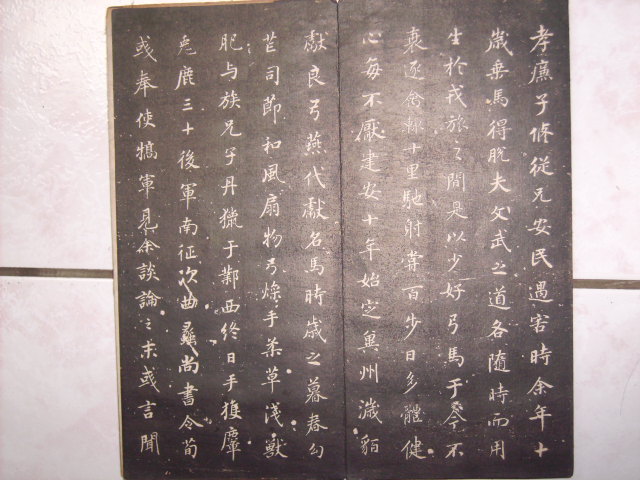 孝廉子修從兄安民遇害時余年十
歲乘馬得脫夫文武之道各隨時而用
生於戎旅之間是以少好弓馬于今不
衰逐禽輒十里馳射常百步日多體健
心每不厭建安十年始定冀州濊貊
獻良弓燕代獻名馬時歲之暮春勾
芒司節和風扇物弓燥手柔草淺獸
肥与族兄子丹獵于鄴西終日手獲麞
兔鹿三十後軍南征次曲蠡尚書令荀
彧奉使犒軍見余談論之末彧言聞